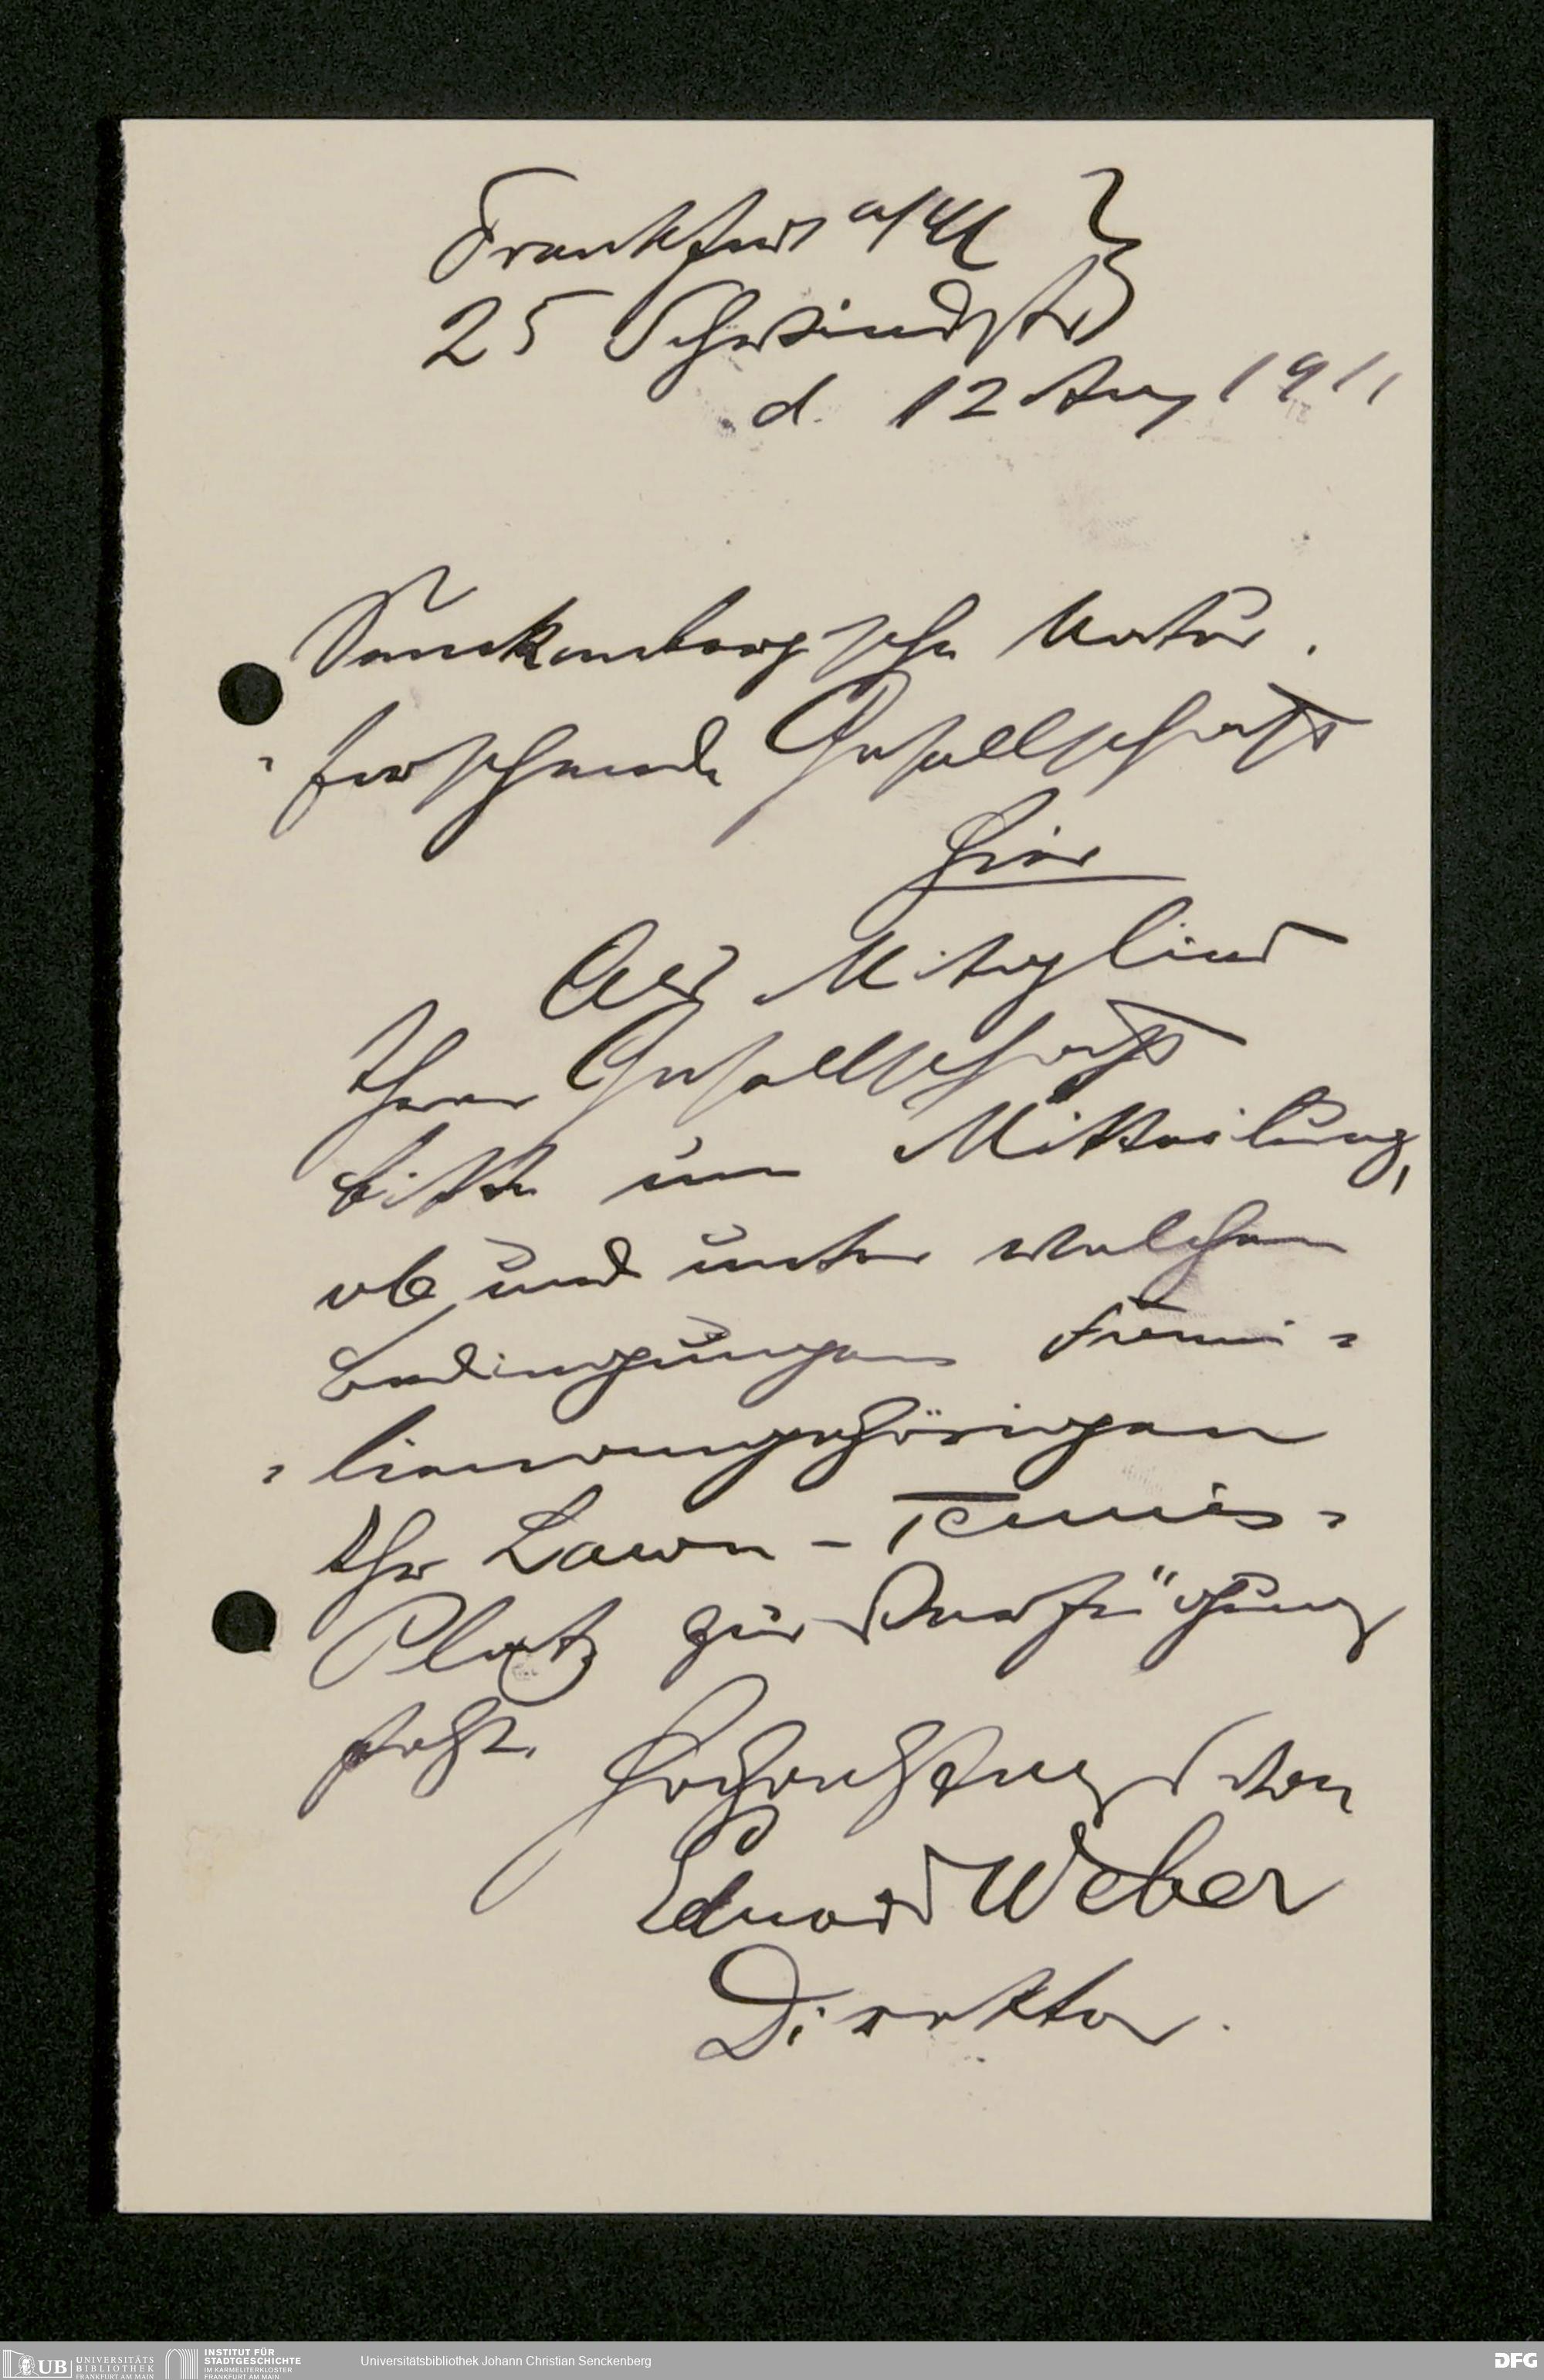 Frankfurt a/M
25 Schwindstr
d. 12 Aug 1911
Senckenbergische Natur-
-forschende Gesellschaft
hier
Als Mitglied
Ihrer Gesellschaft
bitte um Mitteilung,
ob und unter welchen
Bedingungen Fami-
-lienangehörigen
Ihr Lawn-Tennis-
Platz zur Verfügung
steht.
Hochachtungsvoll
Eduard Weber
Direktor.
UB UNIVERSITÄTS
BIBLIOTHEK
FRANKFURT AM MAIN
INSTITUT FÜR
STADTGESCHICHTE
IM KARMELITERKLOSTER
FRANKFURT AM MAIN
Universitätsbibliothek Johann Christian Senckenberg
DFG